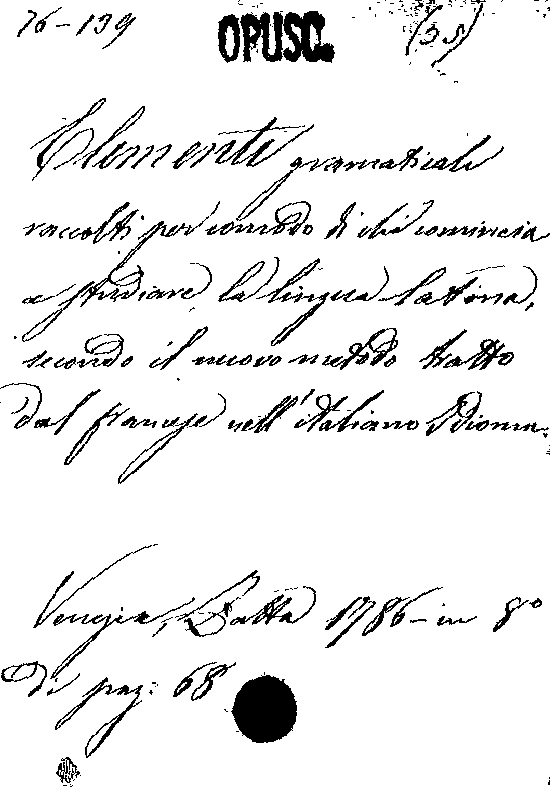 76-139 OPUSC. (35)
Elementi gramaticali
raccolti per comodo di chi comincia
a studiare la lingua latina,
secondo il nuovo metodo tratto
dal francese nell'italiano Idioma.
Venezia, Batta 1786 - in 8º
Di pag: 68